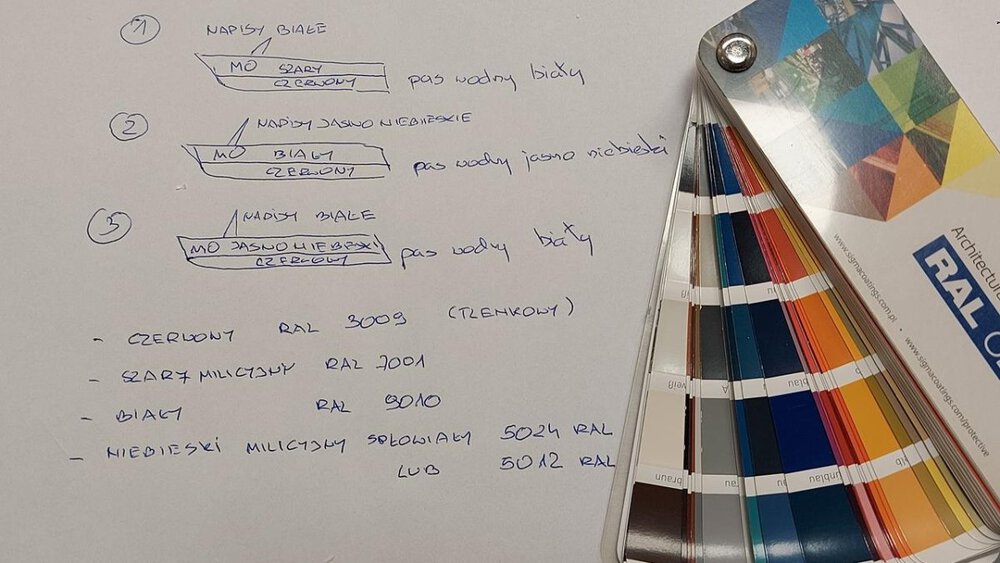 1
NAPISY BIAŁE
MO SZARY
CZERWONY
pas wodny biały
2
NAPISY JASNO NIEBIESKIE
MO BIAŁY
CZERWONY
pas wodny jasno niebieski
3
NAPISY BIAŁE
MO JASNONIEBIESKI
CZERWONY
pas wodny biały
- CZERWONY RAL 3009 (TLENKOWY)
- SZARY MILICYJNY RAL 7001
- BIAŁY RAL 9010
- NIEBIESKI MILICYJNY SPŁOWIAŁY 5024 RAL
LUB 5012 RAL
Architectura
RAL
www.sigmacoatings.com.pl · www.sigmacoatings.com/protective
weiß
blau
braun